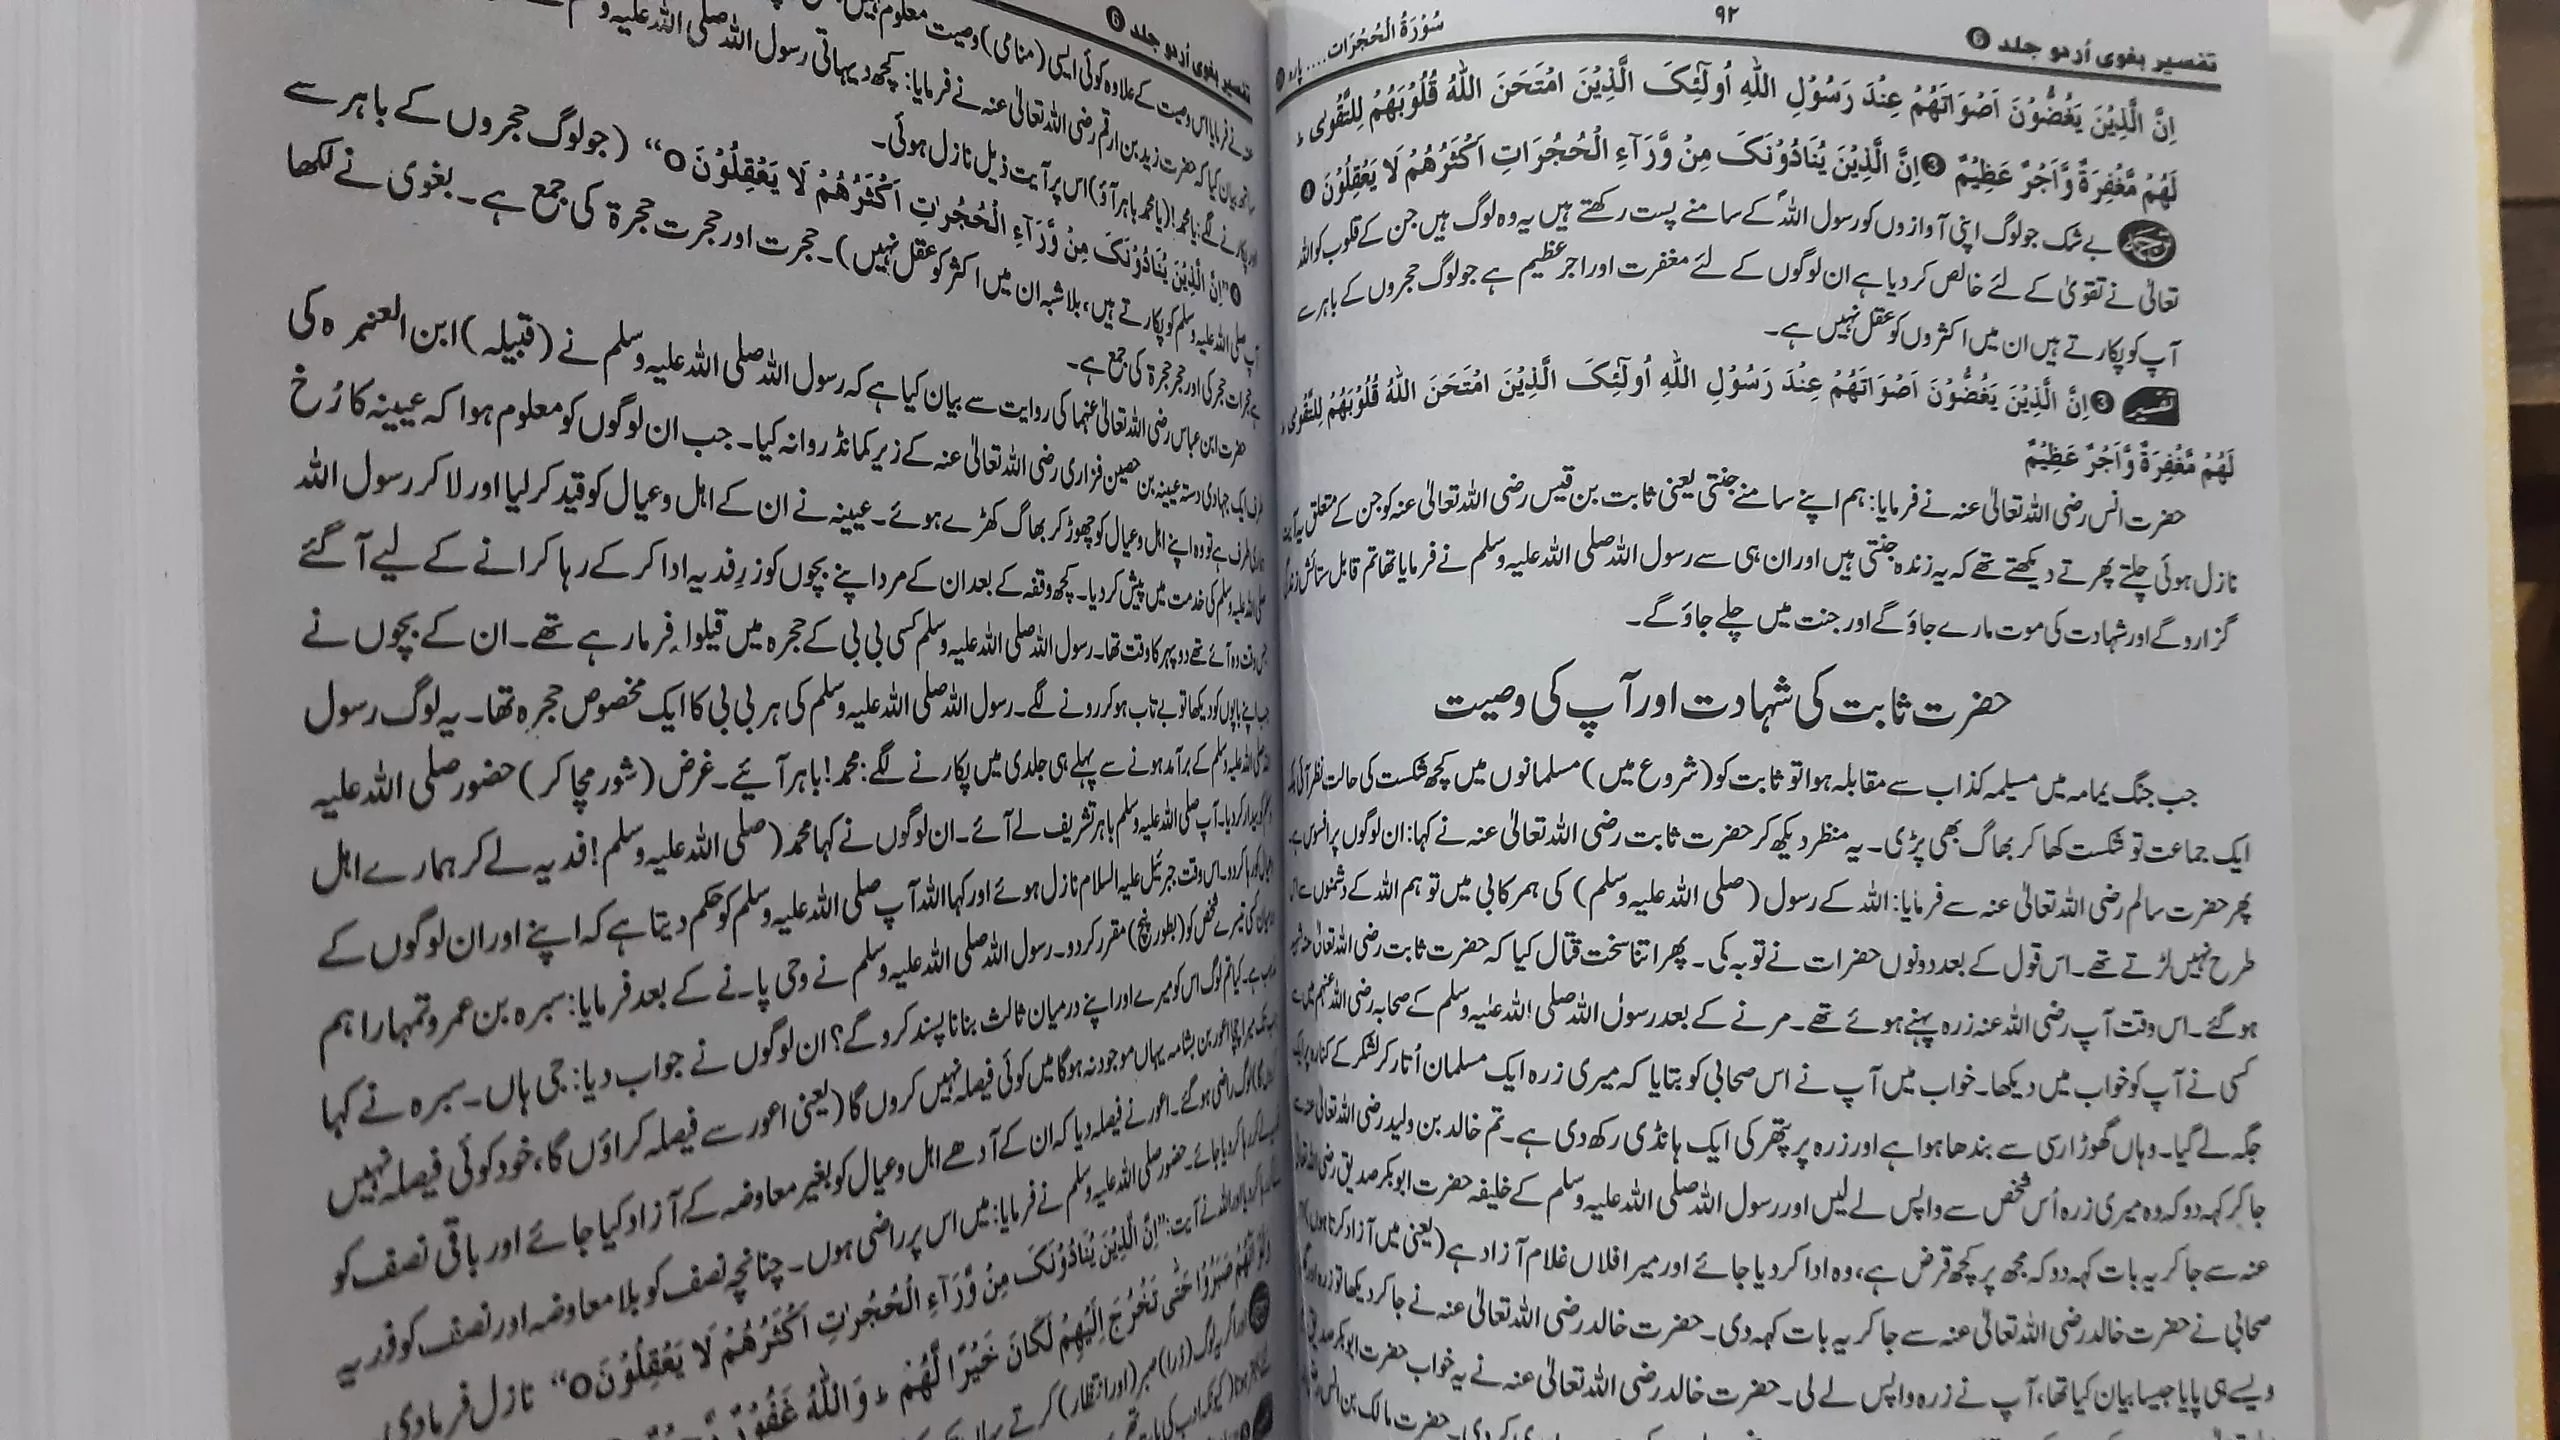 تفسیر بغوی اُردو جلد ❻
۹۲
سُوْرَةُ الْحُجُرَات .... پارہ
اِنَّ الَّذِيْنَ يَغُضُّوْنَ اَصْوَاتَهُمْ عِنْدَ رَسُوْلِ اللّٰهِ اُولٰٓئِكَ الَّذِيْنَ امْتَحَنَ اللّٰهُ قُلُوْبَهُمْ لِلتَّقْوٰى ط
لَهُمْ مَّغْفِرَةٌ وَّاَجْرٌ عَظِيْمٌ ❸ اِنَّ الَّذِيْنَ يُنَادُوْنَكَ مِنْ وَّرَآءِ الْحُجُرَاتِ اَكْثَرُهُمْ لَا يَعْقِلُوْنَ ❹
بے شک جو لوگ اپنی آوازوں کو رسول اللہؐ کے سامنے پست رکھتے ہیں یہ وہ لوگ ہیں جن کے قلوب کو اللہ
تعالیٰ نے تقویٰ کے لئے خالص کر دیا ہے ان لوگوں کے لئے مغفرت اور اجر عظیم ہے جو لوگ حجروں کے باہر سے
آپ کو پکارتے ہیں ان میں اکثروں کو عقل نہیں ہے۔
تفسیر ❸ اِنَّ الَّذِيْنَ يَغُضُّوْنَ اَصْوَاتَهُمْ عِنْدَ رَسُوْلِ اللّٰهِ اُولٰٓئِكَ الَّذِيْنَ امْتَحَنَ اللّٰهُ قُلُوْبَهُمْ لِلتَّقْوٰى ط
لَهُمْ مَّغْفِرَةٌ وَّاَجْرٌ عَظِيْمٌ
حضرت انس رضی اللہ تعالیٰ عنہ نے فرمایا: ہم اپنے سامنے جنتی یعنی ثابت بن قیس رضی اللہ تعالیٰ عنہ کو جن کے متعلق یہ آیت
نازل ہوئی چلتے پھرتے دیکھتے تھے کہ یہ زندہ جنتی ہیں اور ان ہی سے رسول اللہ صلی اللہ علیہ وسلم نے فرمایا تھا تم قابل ستائش زندگی
گزارو گے اور شہادت کی موت مارے جاؤ گے اور جنت میں چلے جاؤ گے۔
حضرت ثابت کی شہادت اور آپ کی وصیت
جب جنگ یمامہ میں مسیلمہ کذاب سے مقابلہ ہوا تو ثابت کو (شروع میں) مسلمانوں میں کچھ شکست کی حالت نظر آئی بلکہ
ایک جماعت تو شکست کھا کر بھاگ بھی پڑی۔ یہ منظر دیکھ کر حضرت ثابت رضی اللہ تعالیٰ عنہ نے کہا: ان لوگوں پر افسوس ہے
پھر حضرت سالم رضی اللہ تعالیٰ عنہ سے فرمایا: اللہ کے رسول (صلی اللہ علیہ وسلم) کی ہمرکابی میں تو ہم اللہ کے دشمنوں سے اس
طرح نہیں لڑتے تھے۔ اس قول کے بعد دونوں حضرات نے توبہ کی۔ پھر اتنا سخت قتال کیا کہ حضرت ثابت رضی اللہ تعالیٰ عنہ شہید
ہو گئے۔ اس وقت آپ رضی اللہ عنہ زرہ پہنے ہوئے تھے۔ مرنے کے بعد رسول اللہ صلی اللہ علیہ وسلم کے صحابہ رضی اللہ عنہم میں سے
کسی نے آپ کو خواب میں دیکھا۔ خواب میں آپ نے اس صحابی کو بتایا کہ میری زرہ ایک مسلمان اُتار کر لشکر کے کنارہ پر ایک
جگہ لے گیا۔ وہاں گھوڑا رسی سے بندھا ہوا ہے اور زرہ پر پتھر کی ایک ہانڈی رکھ دی ہے۔ تم خالد بن ولید رضی اللہ تعالیٰ عنہ سے
جا کر کہہ دو کہ وہ میری زرہ اُس شخص سے واپس لے لیں اور رسول اللہ صلی اللہ علیہ وسلم کے خلیفہ حضرت ابو بکر صدیق رضی اللہ تعالیٰ
عنہ سے جا کر یہ بات کہہ دو کہ مجھ پر کچھ قرض ہے، وہ ادا کر دیا جائے اور میرا فلاں غلام آزاد ہے (یعنی میں آزاد کرتا ہوں)
صحابی نے حضرت خالد رضی اللہ تعالیٰ عنہ سے جا کر یہ بات کہہ دی۔ حضرت خالد رضی اللہ تعالیٰ عنہ نے جا کر دیکھا تو زرہ اور
ویسے ہی پایا جیسا بیان کیا تھا، آپ نے زرہ واپس لے لی۔ حضرت خالد رضی اللہ تعالیٰ عنہ نے یہ خواب حضرت ابو بکر صدیق
حضرت مالک بن انس
تفسیر بغوی اُردو جلد ❻
نے فرمایا اس وصیت کے علاوہ کوئی ایسی (منامی) وصیت معلوم نہیں
بیان کیا کہ حضرت زید بن ارقم رضی اللہ تعالیٰ عنہ نے فرمایا: کچھ دیہاتی رسول اللہ صلی اللہ علیہ وسلم
پکارنے لگے: یا محمد! (یا محمد باہر آؤ) اس پر آیت ذیل نازل ہوئی۔
❹ "اِنَّ الَّذِيْنَ يُنَادُوْنَكَ مِنْ وَّرَآءِ الْحُجُرٰتِ اَكْثَرُهُمْ لَا يَعْقِلُوْنَ O" (جو لوگ حجروں کے باہر سے
آپ صلی اللہ علیہ وسلم کو پکارتے ہیں، بلاشبہ ان میں اکثر کو عقل نہیں)۔ حجرت اور حجرت حجرۃ کی جمع ہے۔ بغوی نے لکھا
ہے حجرات حجر کی اور حجر حجرۃ کی جمع ہے۔
حضرت ابن عباس رضی اللہ تعالیٰ عنہما کی روایت سے بیان کیا ہے کہ رسول اللہ صلی اللہ علیہ وسلم نے (قبیلہ) ابن العنبرہ کی
طرف ایک جہادی دستہ عیینہ بن حصین فزاری رضی اللہ تعالیٰ عنہ کے زیر کمانڈ روانہ کیا۔ جب ان لوگوں کو معلوم ہوا کہ عیینہ کا رُخ
ہماری طرف ہے تو وہ اپنے اہل و عیال کو چھوڑ کر بھاگ کھڑے ہوئے۔ عیینہ نے ان کے اہل و عیال کو قید کر لیا اور لا کر رسول اللہ
صلی اللہ علیہ وسلم کی خدمت میں پیش کر دیا۔ کچھ وقفہ کے بعد ان کے مرد اپنے بچوں کو زرِ فدیہ ادا کر کے رہا کرانے کے لیے آ گئے
جس وقت وہ آئے تھے دوپہر کا وقت تھا۔ رسول اللہ صلی اللہ علیہ وسلم کسی بی بی کے حجرہ میں قیلولہ فرما رہے تھے۔ ان کے بچوں نے
جب اپنے باپوں کو دیکھا تو بے تاب ہو کر رونے لگے۔ رسول اللہ صلی اللہ علیہ وسلم کی ہر بی بی کا ایک مخصوص حجرہ تھا۔ یہ لوگ رسول
اللہ صلی اللہ علیہ وسلم کے برآمد ہونے سے پہلے ہی جلدی میں پکارنے لگے: محمد! باہر آئیے۔ غرض (شور مچا کر) حضور صلی اللہ علیہ
وسلم کو بیدار کر دیا۔ آپ صلی اللہ علیہ وسلم باہر تشریف لے آئے۔ ان لوگوں نے کہا محمد (صلی اللہ علیہ وسلم! فدیہ لے کر ہمارے اہل
و عیال کو رہا کر دو۔ اس وقت جبرئیل علیہ السلام نازل ہوئے اور کہا اللہ آپ صلی اللہ علیہ وسلم کو حکم دیتا ہے کہ اپنے اور ان لوگوں کے
درمیان کسی تیسرے شخص کو (بطور پنچ) مقرر کر دو۔ رسول اللہ صلی اللہ علیہ وسلم نے وحی پانے کے بعد فرمایا: سبرہ بن عمرو تمہارا ہم
مذہب ہے۔ کیا تم لوگ اس کو میرے اور اپنے درمیان ثالث بنانا پسند کرو گے؟ ان لوگوں نے جواب دیا: جی ہاں۔ سبرہ نے کہا
جب تک میرا چچا اعور بن بشامہ یہاں موجود نہ ہوگا میں کوئی فیصلہ نہیں کروں گا (یعنی اعور سے فیصلہ کراؤں گا، خود کوئی فیصلہ نہیں
لوگ راضی ہو گئے۔ اعور نے فیصلہ دیا کہ ان کے آدھے اہل و عیال کو بغیر معاوضہ کے آزاد کیا جائے اور باقی نصف کو
رہا کر دیا جائے۔ حضور صلی اللہ علیہ وسلم نے فرمایا: میں اس پر راضی ہوں۔ چنانچہ نصف کو بلا معاوضہ اور نصف کو فدیہ
اللہ نے آیت: "اِنَّ الَّذِيْنَ يُنَادُوْنَكَ مِنْ وَّرَآءِ الْحُجُرٰتِ اَكْثَرُهُمْ لَا يَعْقِلُوْنَ O" نازل فرما دی
وَلَوْ اَنَّهُمْ صَبَرُوْا حَتّٰى تَخْرُجَ اِلَيْهِمْ لَكَانَ خَيْرًا لَّهُمْ ط وَاللّٰهُ غَفُوْرٌ
اور اگر یہ لوگ (ذرا) صبر (اور انتظار) کرتے